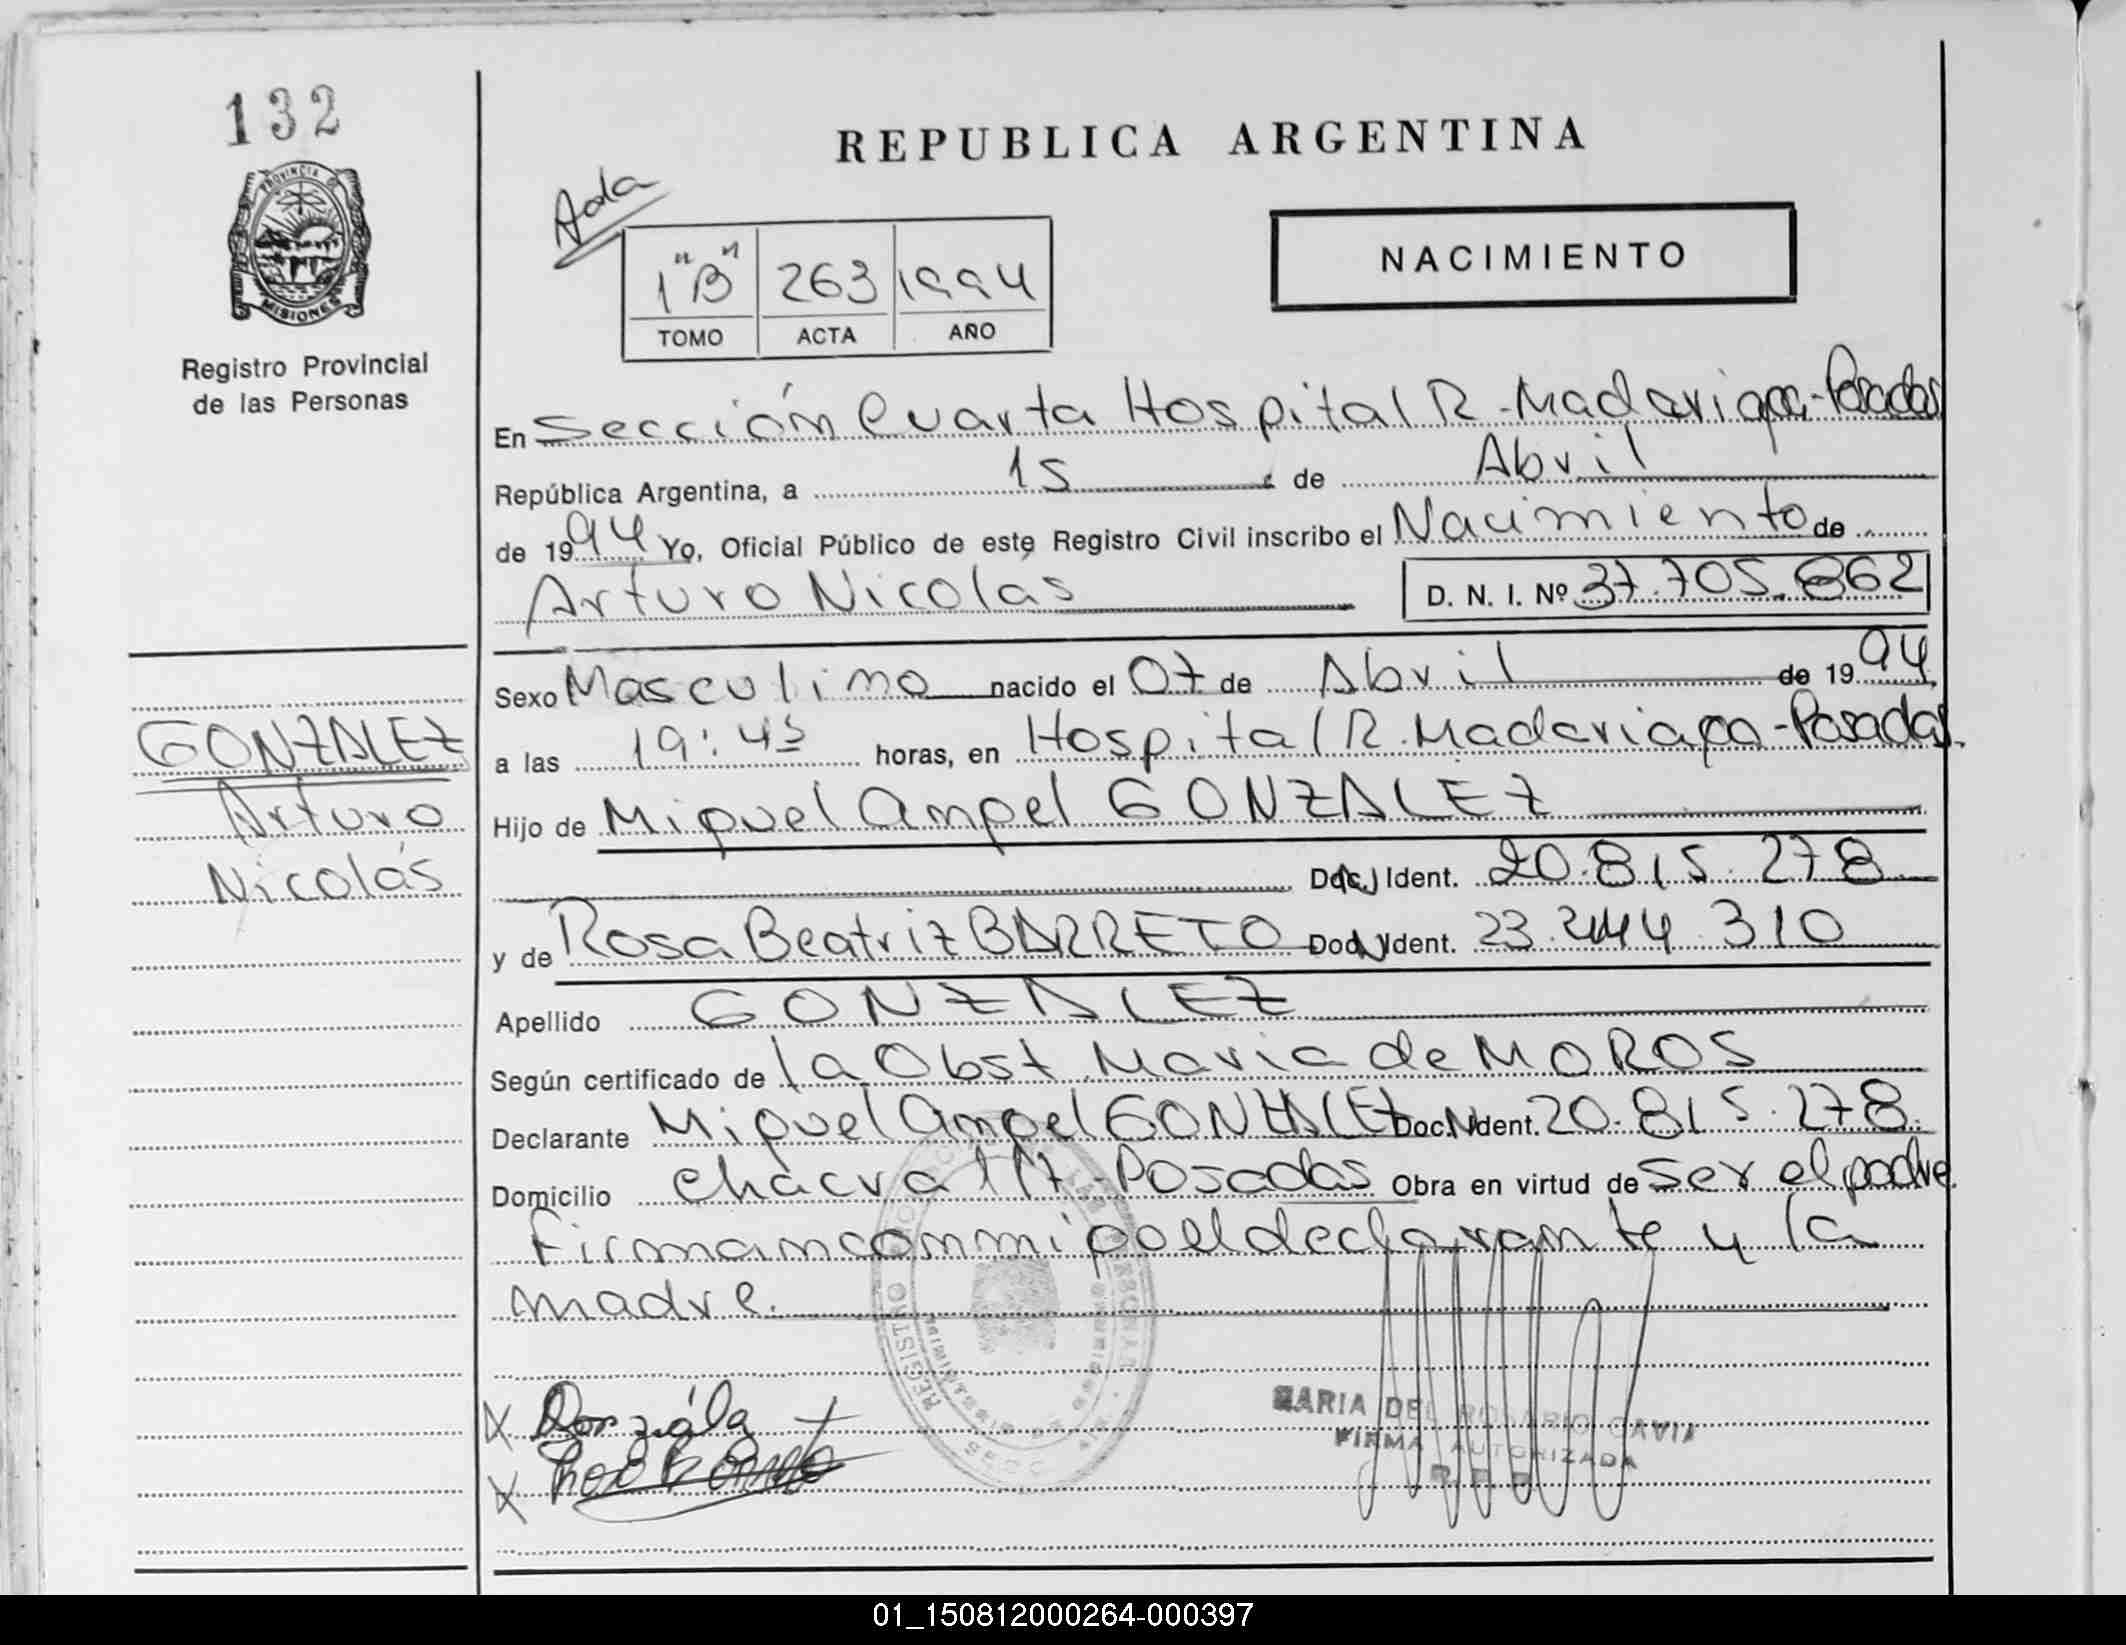 132
PROVINCIA DE
MISIONES
Registro Provincial
de las Personas
GONZALEZ
Arturo
Nicolás
REPUBLICA ARGENTINA
Ada
1 "B" 263 1994
TOMO ACTA AÑO
NACIMIENTO
En Sección Cuarta Hospital R. Madariaga - Posadas
República Argentina, a 15 de Abril
de 1994 Yo, Oficial Público de este Registro Civil inscribo el Nacimiento de
Arturo Nicolás D. N. I. Nº 37.705.862
Sexo Masculino nacido el 07 de Abril de 1994
a las 19:45 horas, en Hospital R. Madariaga - Posadas.
Hijo de Miguel Angel GONZALEZ
Doc. Ident. 20.815.278
y de Rosa Beatriz BARRETO Doc. Ident. 23.244.310
Apellido GONZALEZ
Según certificado de la Obst. Maria de MOROS
Declarante Miguel Angel GONZALEZ Doc. Ident. 20.815.278.
Domicilio Chacra 117 - Posadas Obra en virtud de ser el padre.
Firman conmigo el declarante y la
madre.
X
X
MARIA DEL ROSARIO GAVIA
FIRMA AUTORIZADA
01_150812000264-000397